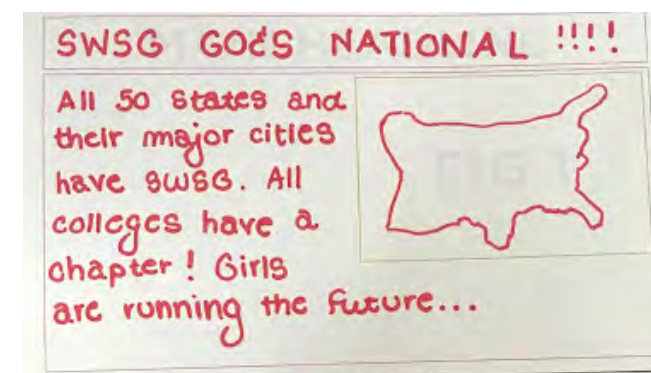 SWSG GOES NATIONAL !!!!
All 50 states and
their major cities
have SWSG. All
colleges have a
chapter! Girls
are running the future...